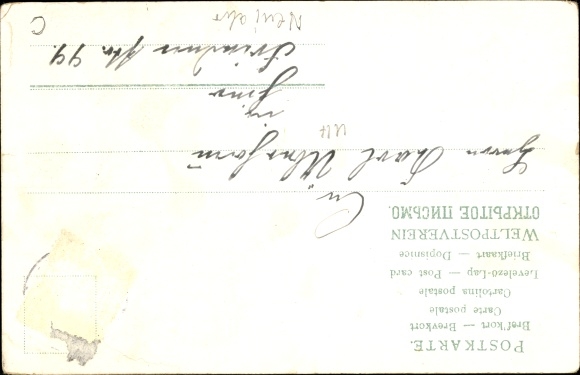 POSTKARTE.
Bref'kort — Brevkort
Carte postale
Cartolina postale
Levelező-Lap — Post card
Briefkaart — Dopisnice
WELTPOSTVEREIN
ОТКРЫТОЕ ПИСЬМО.
An
Herrn Karl
in
Jena
Neujahr
C